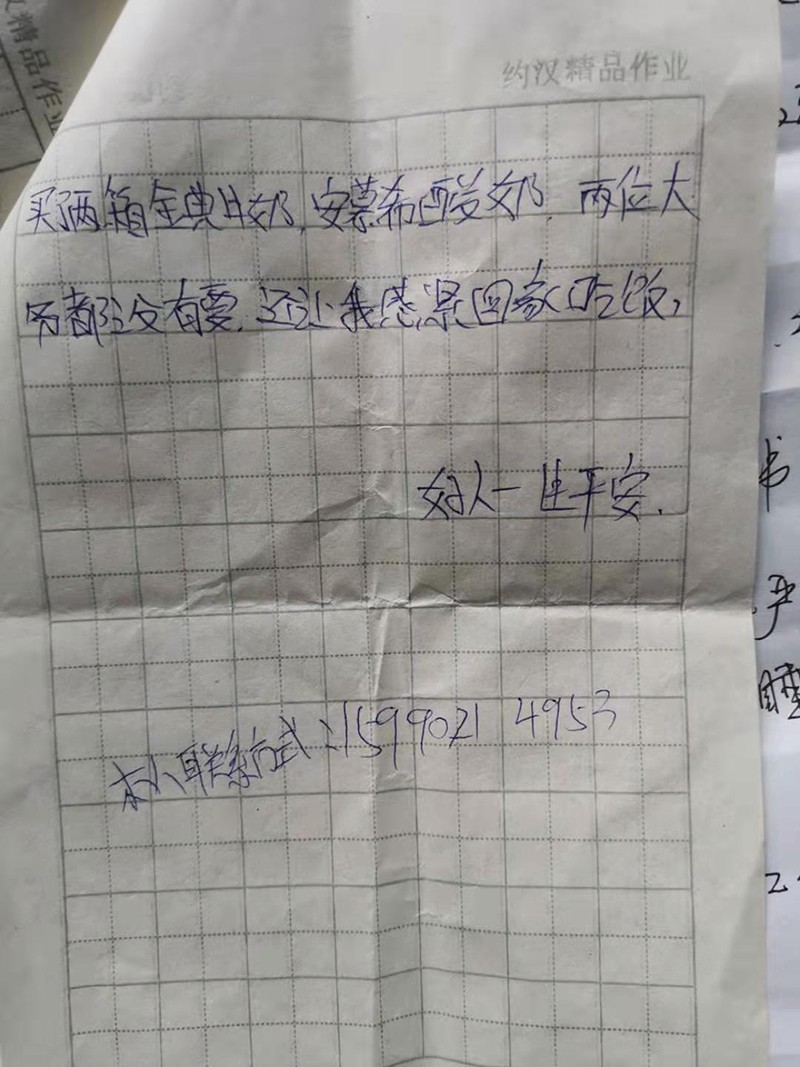 约汉精品作业
精品作业
买了两箱金典牛奶,安慕希酸奶,两位大
哥都没有要,还让我感紧回家吃饭,
好人一生平安.
本人联系方式:1599021 4953
书
严